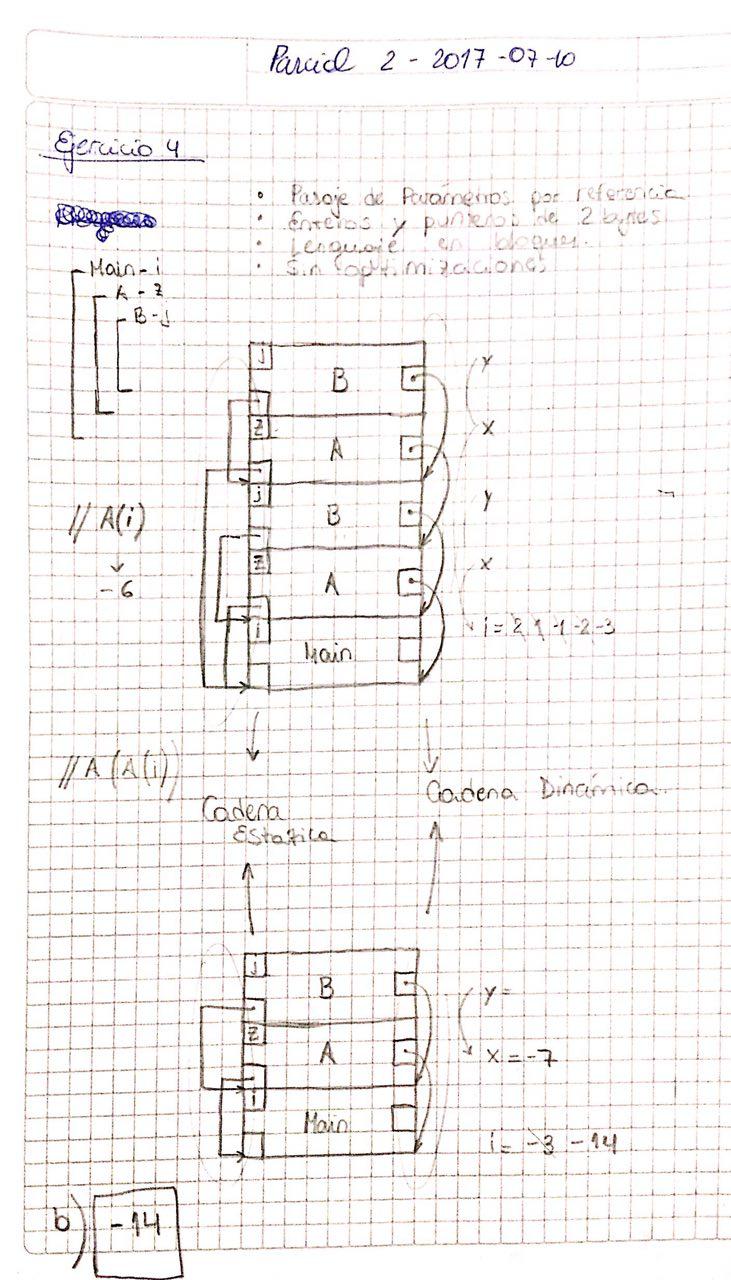 Parcial 2 - 2017-07-10
Ejercicio 4
• Pasaje de Parámetros por referencia
• Enteros y punteros de 2 bytes
• Lenguaje en bloques.
• Sin optimizaciones
Main - i
A - z
B - j
j
B
y
z
A
x
j
B
y
// A(i)
z
A
x
-6
i
Main
i = 2 1 -1 -2 -3
// A(A(i))
Cadena
Estatica
Cadena Dinámica
j
B
y =
z
A
x = -7
i
Main
i = -3 -14
b) -14